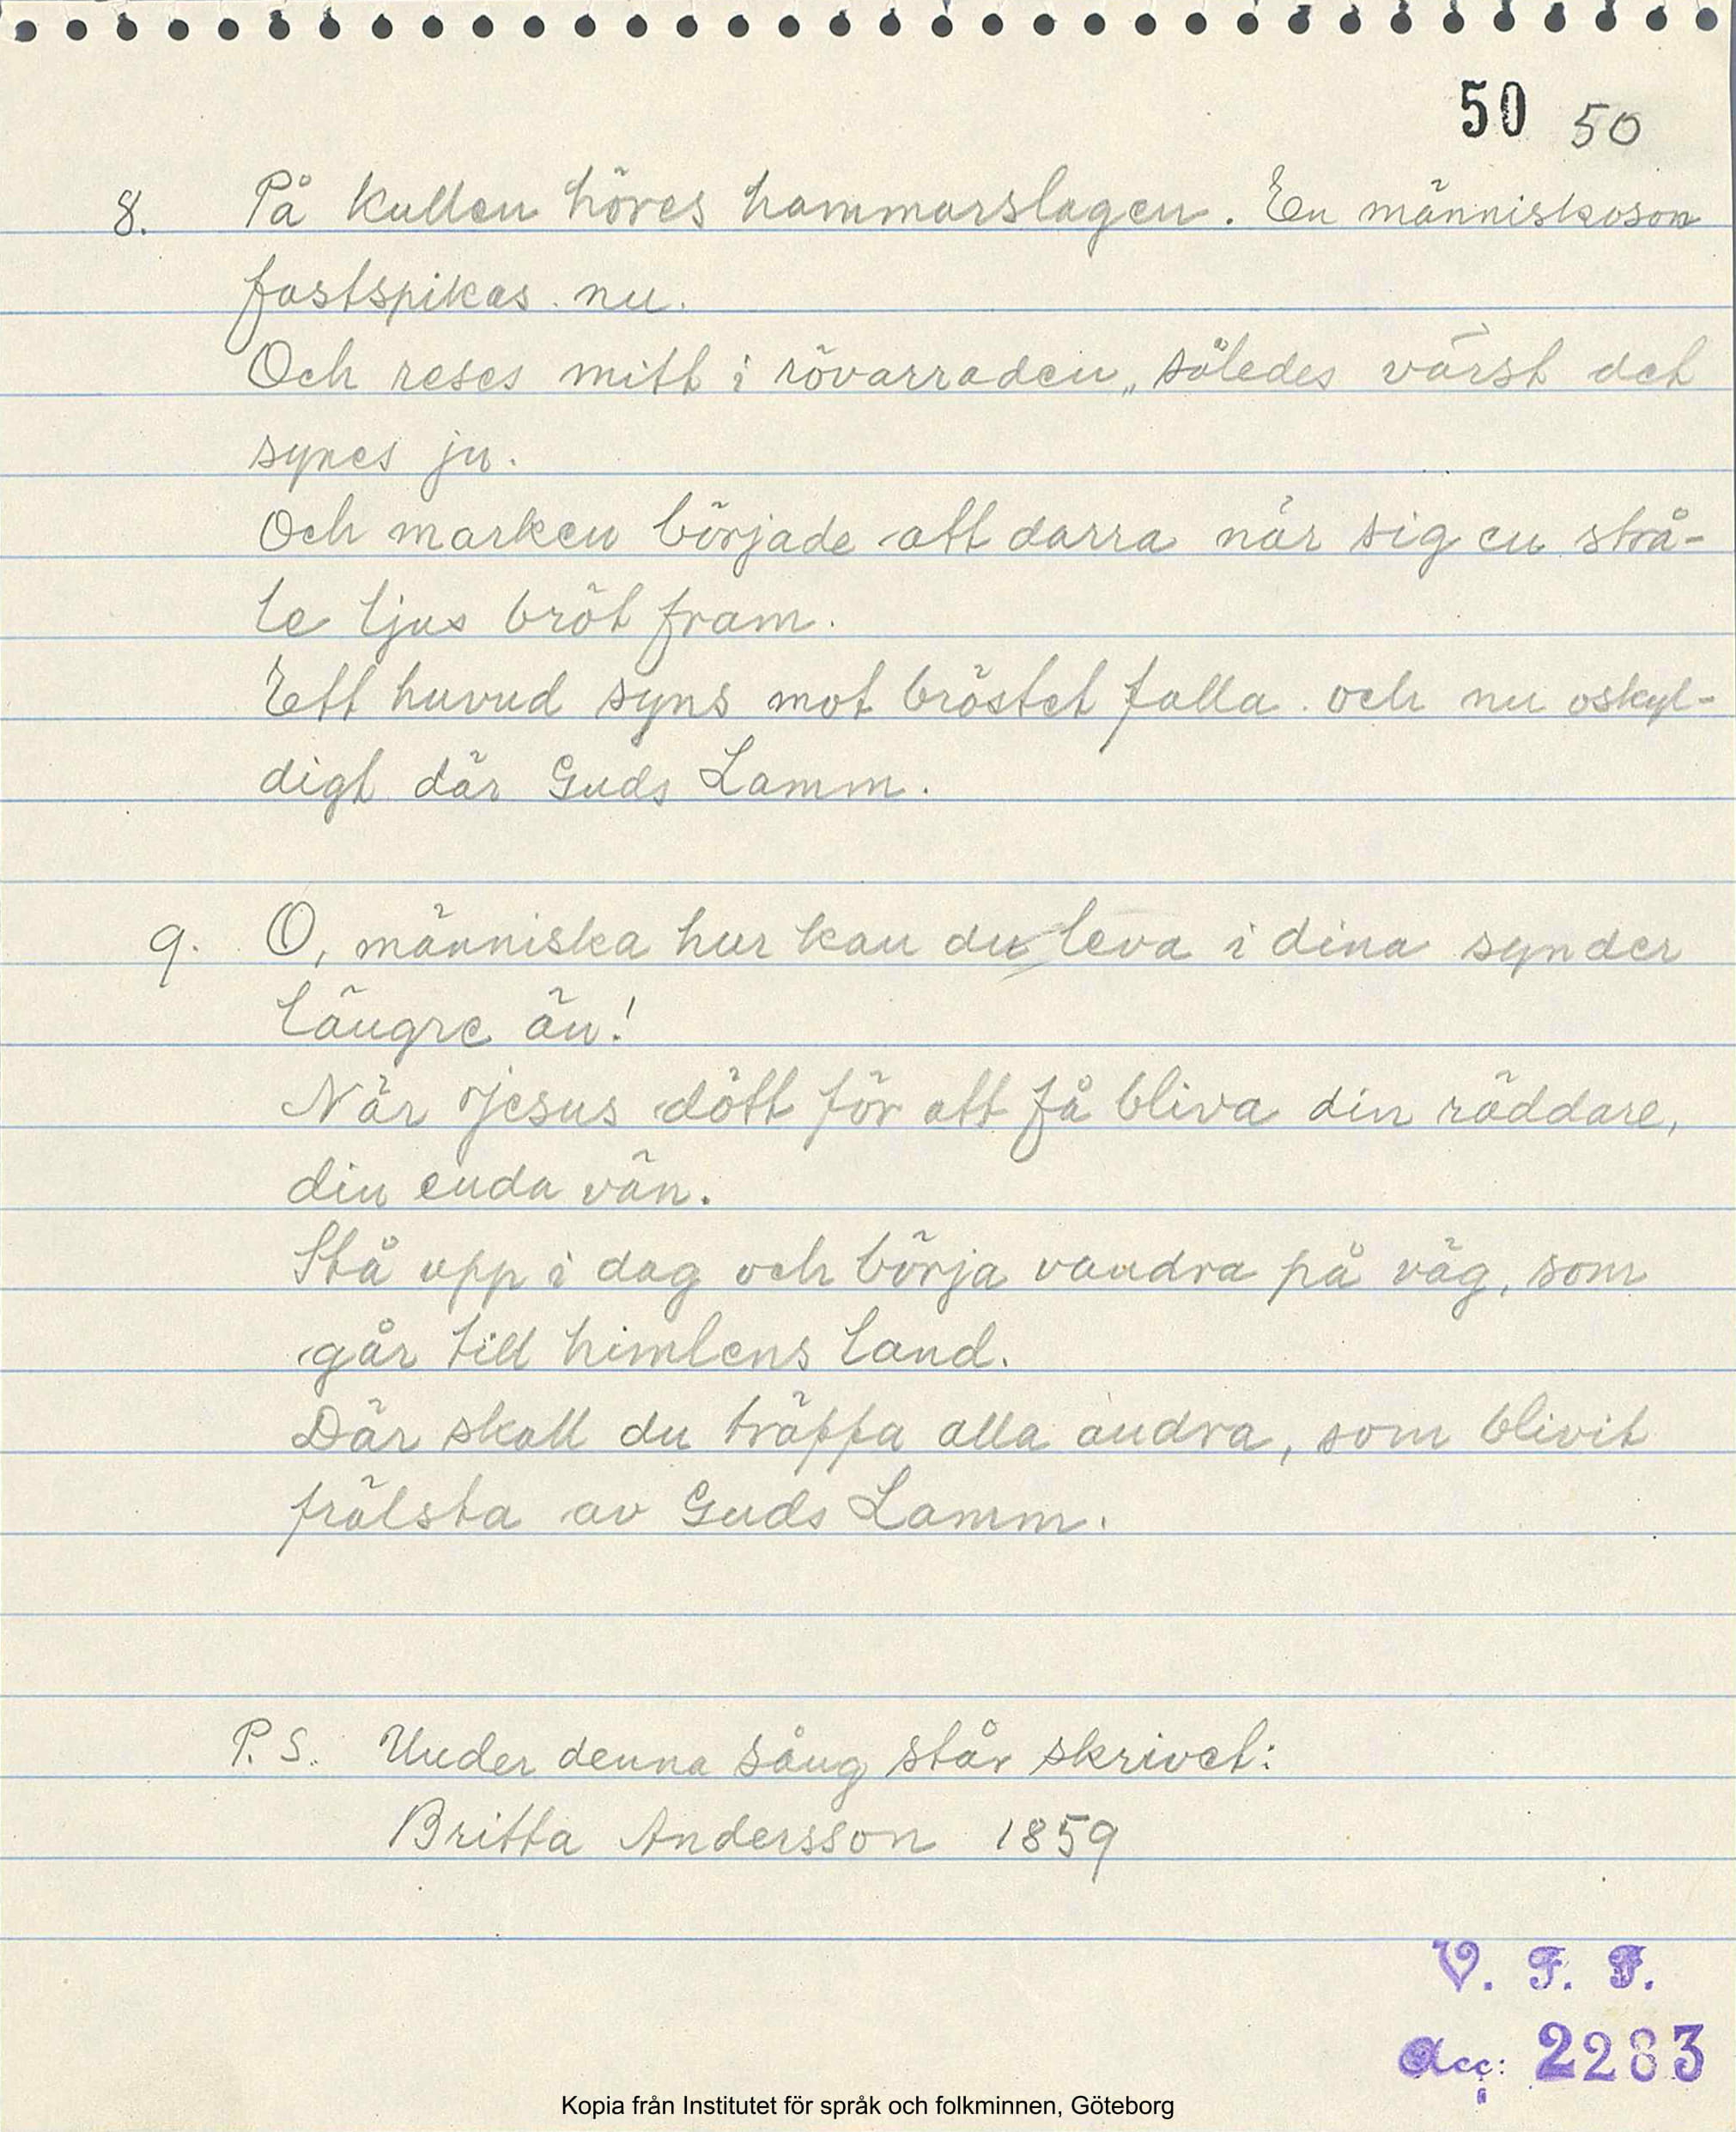 50 50
8. På kullen höres hammarslagen. En människoson
fastspikas nu.
Och reses mitt i rövarraden, således värst det
synes ju.
Och marken började att darra när sig en strå-
le ljus bröt fram.
Ett huvud syns mot bröstet falla och nu oskyl-
digt dör Guds Lamm.
9. O, människa hur kan du leva i dina synder
längre än!
När Jesus dött för att få bliva din räddare,
din enda vän.
Stå upp i dag och börja vandra på väg, som
går till himlens land.
Där skall du träffa alla andra, som blivit
frälsta av Guds Lamm.
P.S. Under denna sång står skrivet:
Britta Andersson 1859
V. F. F.
Acc: 2283
Kopia från Institutet för språk och folkminnen, Göteborg